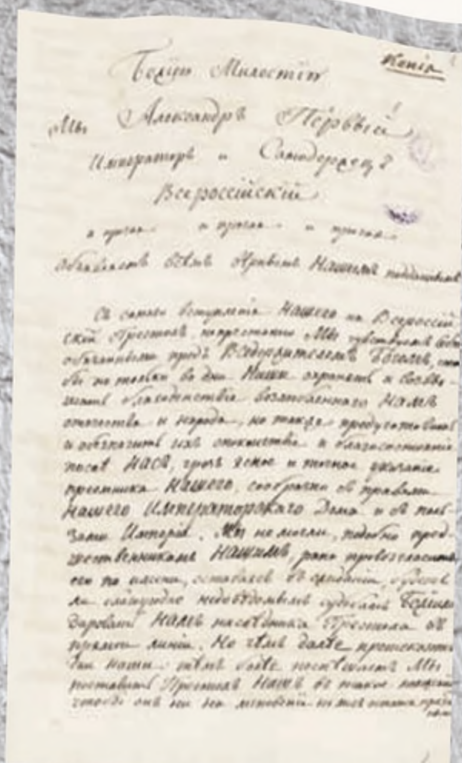 Копія
Божіею Милостію
Мы Александръ Первый
Императоръ и Самодержецъ
Всероссійский
и прочая и прочая и прочая
Объявляемъ всѣмъ вѣрнымъ Нашимъ подданнымъ
Съ самаго вступленія Нашего на Всероссій
скій Престолъ, непрестанно Мы чувствуемъ Себя
обязанными предъ Вседержителемъ Богомъ, что
бы не только во дни Наши охранять и возвы-
шать благоденствіе возлюбленнаго Намъ
отечества и народа, но также предуготовить
и обезпечить ихъ спокойствіе и благосостояніе
послѣ Насъ, чрезъ ясное и точное указаніе
преемника Нашего, сообразно съ правами
Нашего Императорскаго Дома и съ поль-
зами Имперіи. Мы не могли, подобно пред-
шественникамъ Нашимъ, рано провозгласить
его по имени, оставаясь въ ожиданіи, будетъ
ли благоугодно недовѣдомымъ судьбамъ Божіимъ
даровать Намъ наслѣдника Престола въ
прямой линіи. Но чѣмъ далѣе протекаютъ
дни наши, тѣмъ болѣе поспѣшаемъ Мы
поставить Престолъ Нашъ въ такое положеніе
чтобы онъ ни на мгновеніе не могъ остаться